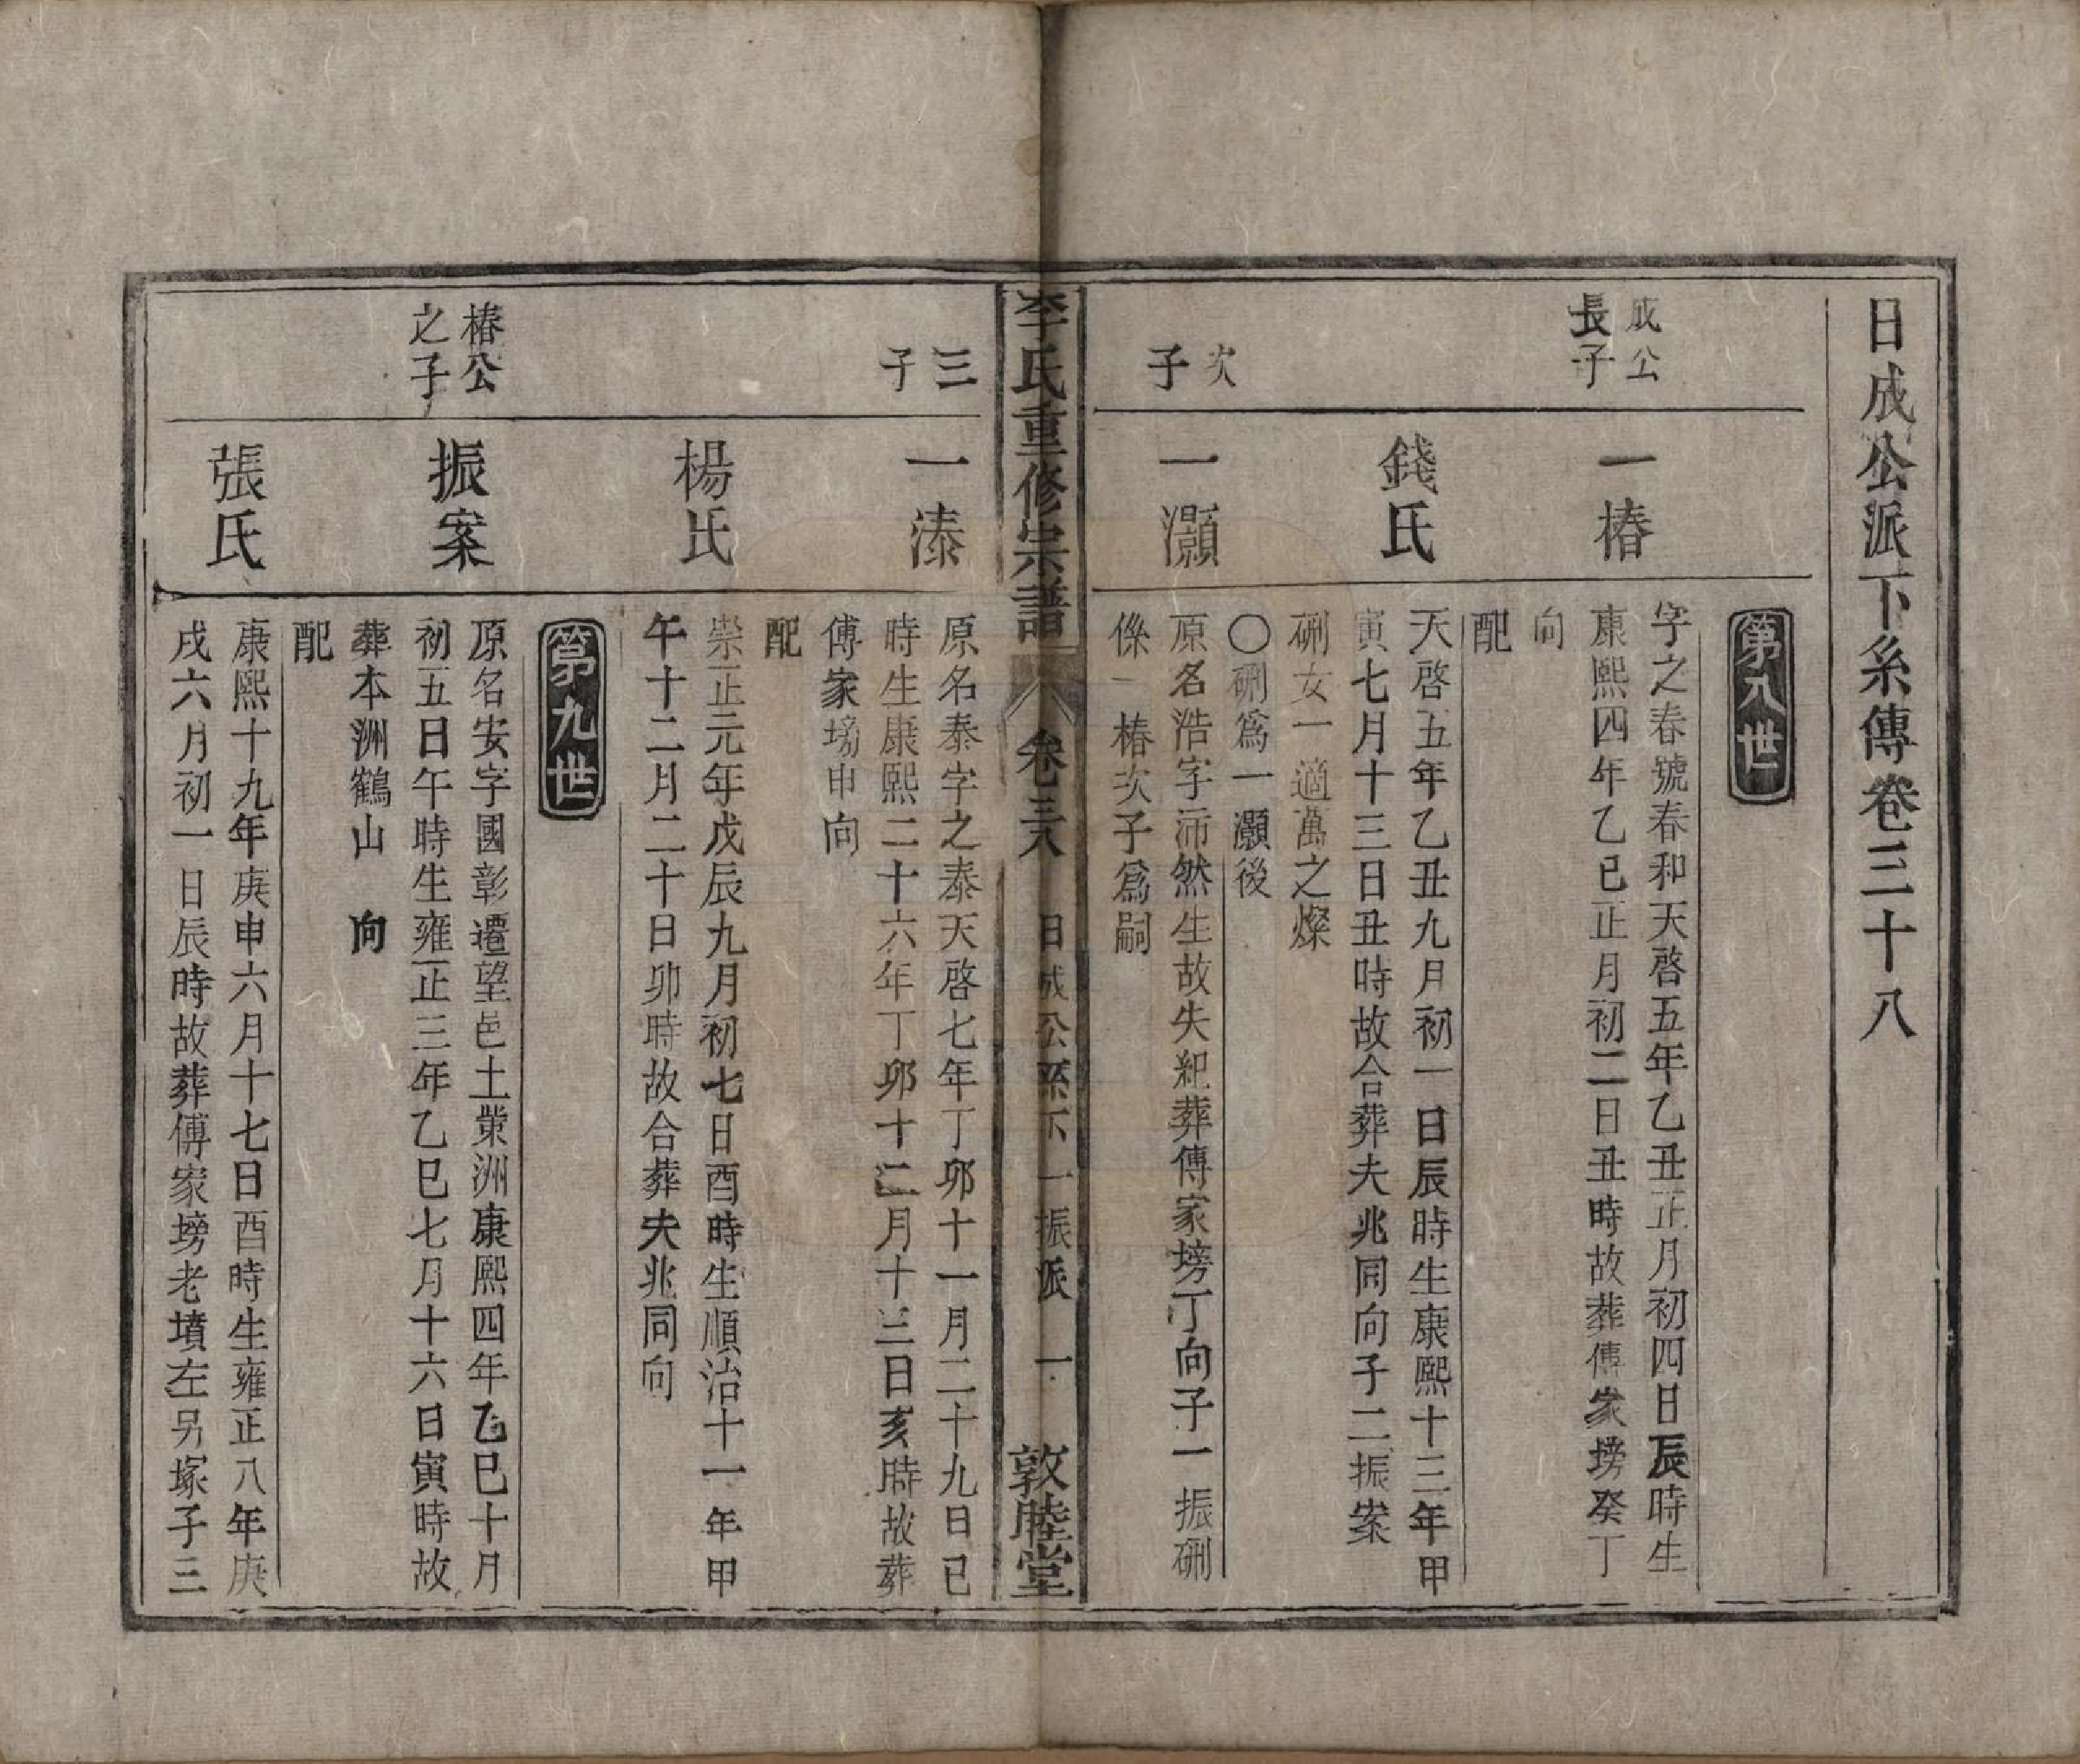 日成公派下系傳卷三十八
第八世
成公
長子
一椿
字之春號春和天啓五年乙丑正月初四日辰時生
康熙四年乙巳正月初二日丑時故葬傅家塝癸丁
向
錢氏
配
天啓五年乙丑九月初一日辰時生康熙十三年甲
寅七月十三日丑時故合葬夫兆同向子二振案
硎女一適萬之燦
〇硎爲一灝後
次
子
一灝
原名浩字沛然生故失紀葬傅家塝丁向子一振硎
係一椿次子爲嗣
李氏重修宗譜
卷三八
日成公系下一振派
一
敦睦堂
三
子
一溙
原名泰字之泰天啓七年丁卯十一月二十九日巳
時生康熙二十六年丁卯十二月十三日亥時故葬
傅家塝申向
楊氏
配
崇正元年戊辰九月初七日酉時生順治十一年甲
午十二月二十日卯時故合葬夫兆同向
第九世
椿公
之子
振案
原名安字國彰遷望邑土業洲康熙四年乙巳十月
初五日午時生雍正三年乙巳七月十六日寅時故
葬本洲鶴山 向
張氏
配
康熙十九年庚申六月十七日酉時生雍正八年庚
戌六月初一日辰時故葬傅家塝老墳左另塚子三